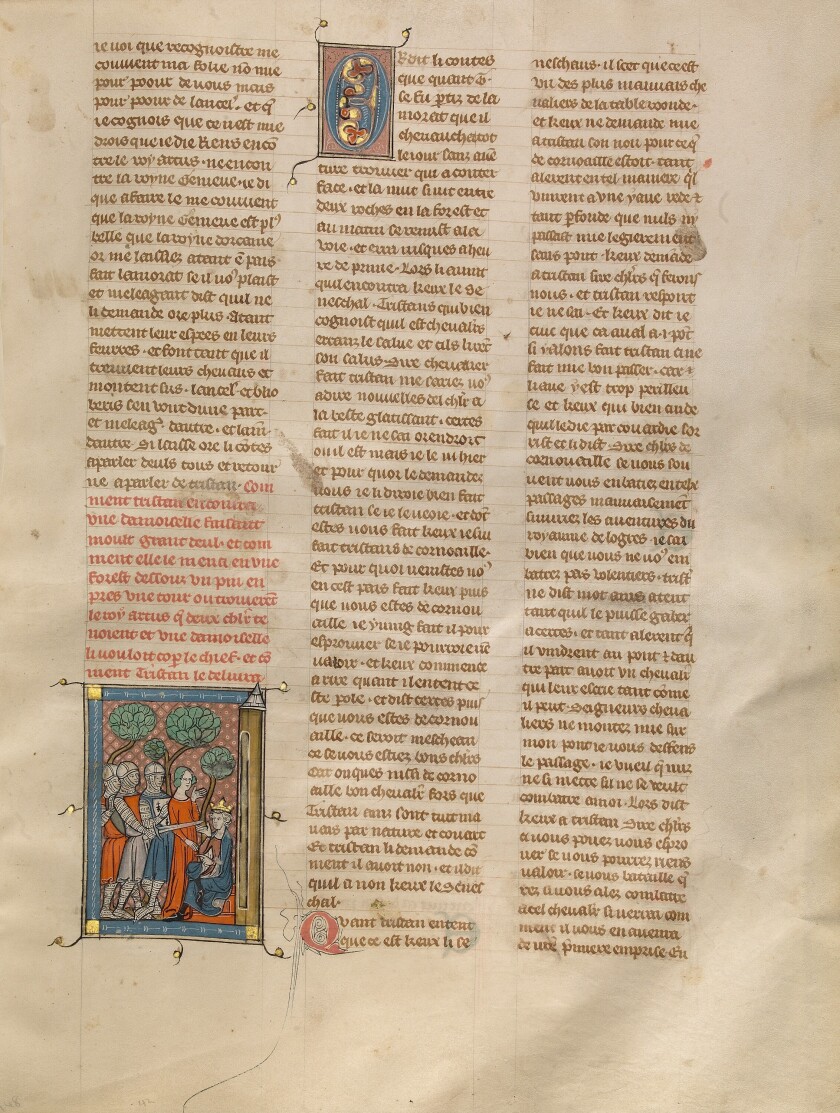 ie voi que recognoistre me
couuient ma folie no mie
pour poour de uous mais
pour poour de lancel'. et q̄
ie cognois que ce nest mie
drois que ie die riens encō
tre le roy artus. ne encon
tre la royne Genieue. ie di
que afaire le me couuient
que la royne Genieue est pl'
belle que la royne dorcanie
or me laissiez atant ē pais
fait lamorat se il uo' plaist
et meleagant dist quil ne
li demande ore plus. Atant
mettent leur espees en leurs
feurres. et font tant que il
treuuent leurs cheuaus et
montent sus. lancel'. et blio
beris sen uont dune part.
et meleag' dautre. et lam.
dautre. Si laisse ore li cōtes
aparler deuls tous et retour
ne aparler de tristan. Com
ment tristan encontra
vne damoiselle faisant
moult grant deul. et com
ment elle le mena en vne
forest dessouz vn pin en
pres vne tour ou trouuerēt
le roy artus q̄ deux chl'rs te
noient et vne damoiselle
li vouloit cop̄ le chief. et cō
ment Tristan le deliura
R dit li contes
que quant G.
se fu p̄tiz de la
morat que il
cheuaucha tot
le iour sanz auē
ture trouuer qui a conter
face. et la nuit si iut entre
deux roches en la forest et
au matin se remist a la
voie. et erra iusques a heu
re de prime. Lors li auint
quil encontra keux le Se
neschal. Tristans qui bien
cognoist quil est cheualiers
errant le salue et cils li rēt
son salus. Sire cheualier
fait tristan me sariez uo'
a dire nouuelles del chl'r a
la beste glatissant. certes
fait il ie ne sai orendroit
ou il est mais ie le ui hier
et pour quoi le demandez
uous ie li diroie bien fait
tristan se ie le ueoie. et dōt
estes uous fait keux ie sui
fait tristans de cornoaille.
Et pour quoi uenistes uo'
en cest pais fait keux puis
que uous estes de cornou
aille ie y uing fait il pour
esprouuer se ie pourroie riē
ualoir. et keux commence
a rire quant il entent ce
ste pole. et dist certes puis
que uous estes de cornou
aille. ce seroit meschean
ce se uous estiez bons chl'rs
Car onques nissi de corno
aille bon cheualier fors que
Tristan ainz sont tuit ma
uais par nature et couart
Et tristan li demande cō
ment il auoit non. et il dit
quil a non keux le Senes
chal.
Quant tristan entent
que ce est keux li se
neschaus. il scet que ce est
vn des plus mauuais che
ualiers de la table ronde.
et keux ne demande mie
a tristan son non pour ce q̄
de cornoaille estoit. tant
alerent en tel maniere q̄l
vindrent a vne yaue rede t
tant p̄fonde que nuls ni
passast mie legierement
sans pont. keux demāde
a tristan sire chl'rs q̄ ferons
nous. et tristan respont
ie ne sai. Et keux dit ie
cuic que ca aual a .i. pōt
si y alons fait tristan ci ne
fait mie bon passer. car
liaue y est trop perilleu
se et keux qui bien cuide
quil le die par couardie sor
rist et li dist. Sire chl'rs de
cornouaille se uous sou
uent uous enbatiez en telx
passages mauuaisemēt
suiuriez les auentures du
royaume de logres. ie sai
bien que uous ne uo' em
batez pas volentiers. trist'
ne dist mot ains atent
tant quil le puisse gaber
acertes. et tant alerent q̄
il vindrent au pont t dau
tre part auoit vn cheualier
qui leur escrie tant come
il peut. Seigneurs cheua
liers ne montez mie sur
mon pont ie uous deffens
le passage. ie vueil q̄ nuz
ne si mette sil ne se veult
combatre a moi. Lors dist
keux a tristan Sire chl'rs
a uous pouez uous espro
uer se uous pourrez riens
ualoir. se uous bataille q̄
rez a uous alez combatre
a cel cheualier si uerrai com
ment il uous en auenra
de vr̄e p̄miere emprise. Eu